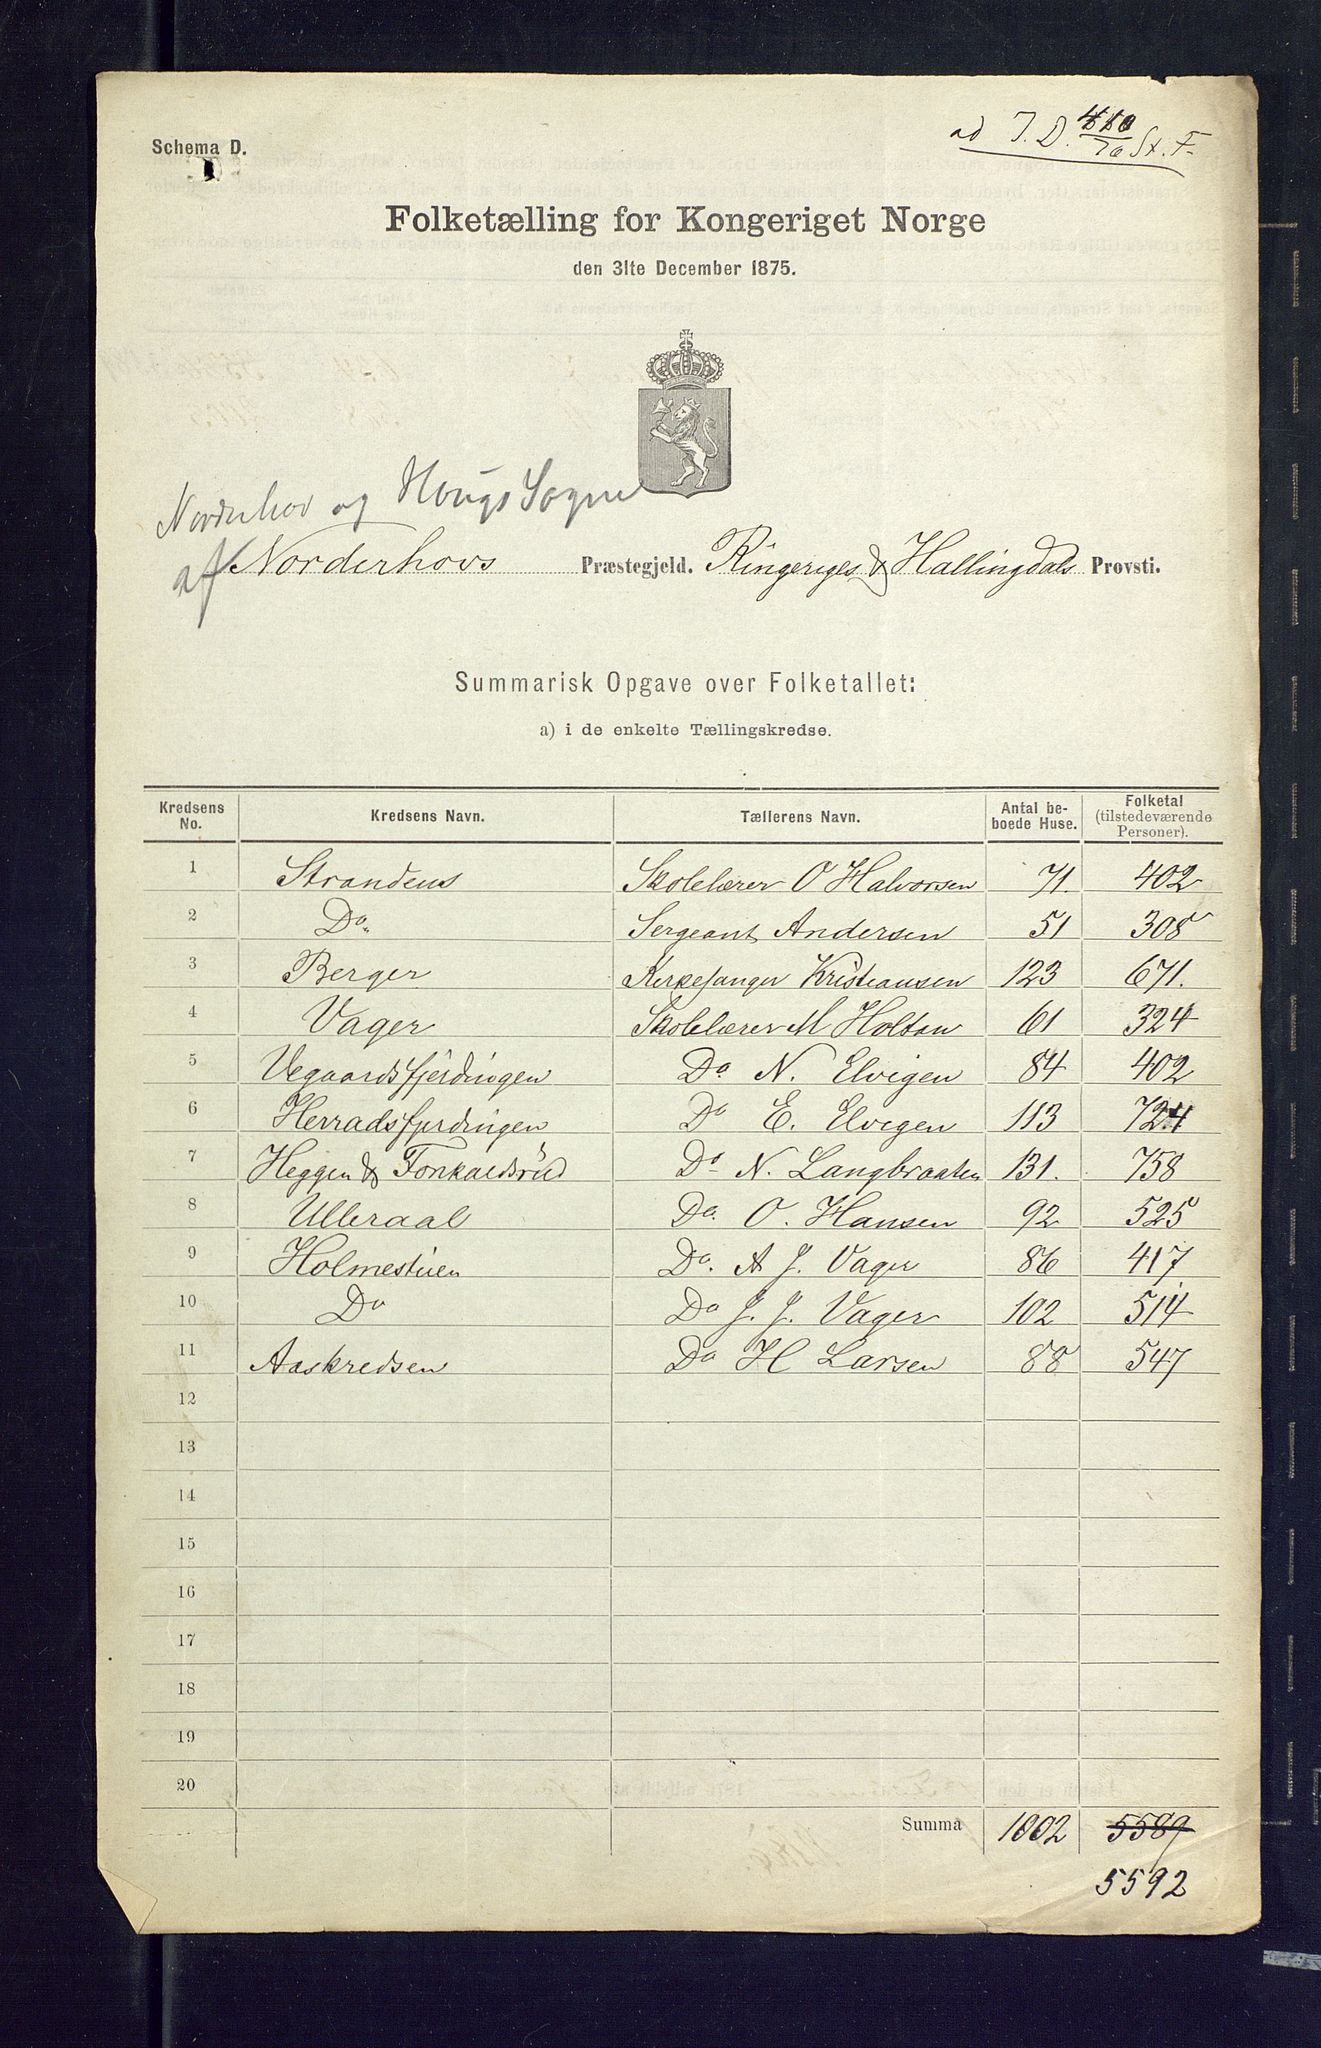 ad J. D. 
Schema D.
Folketælling for Kongeriget Norge
den 31te December 1875.
Norderhov og Hougs Sogne
af Norderhovs Præstegjeld. Ringeriges & Hallingdals Provsti.
Summarisk Opgave over Folketallet:
a) i de enkelte Tællingskredse.
Kredsens No. Kredsens Navn. Tællerens Navn. Antal beboede Huse. Folketal (tilstedeværende Personer).
1 Strandens Skolelærer O Halvorsen 71. 402
2 Do. Sergeant Andersen 51 308
3 Berger Kirkesanger Kristiansen 123 671.
4 Vager Skolelærer M Holtan 61 324
5 Vegaardsfjerdingen Do. N. Elvigen 84 402
6 Herradsfjerdingen Do E. Elvigen 113 724
7 Heggen & Do N. Langbraaten 131. 758
8 Ulleraal Do. O. Hansen 92 525
9 Holmestuen Do. A J. Vager 86 417
10 Do Do J. J. Vager 102 514
11 Aaskredsen Do H Larsen 88 547
12
13
14
15
16
17
18
19
20
Summa 1002 5589
5592